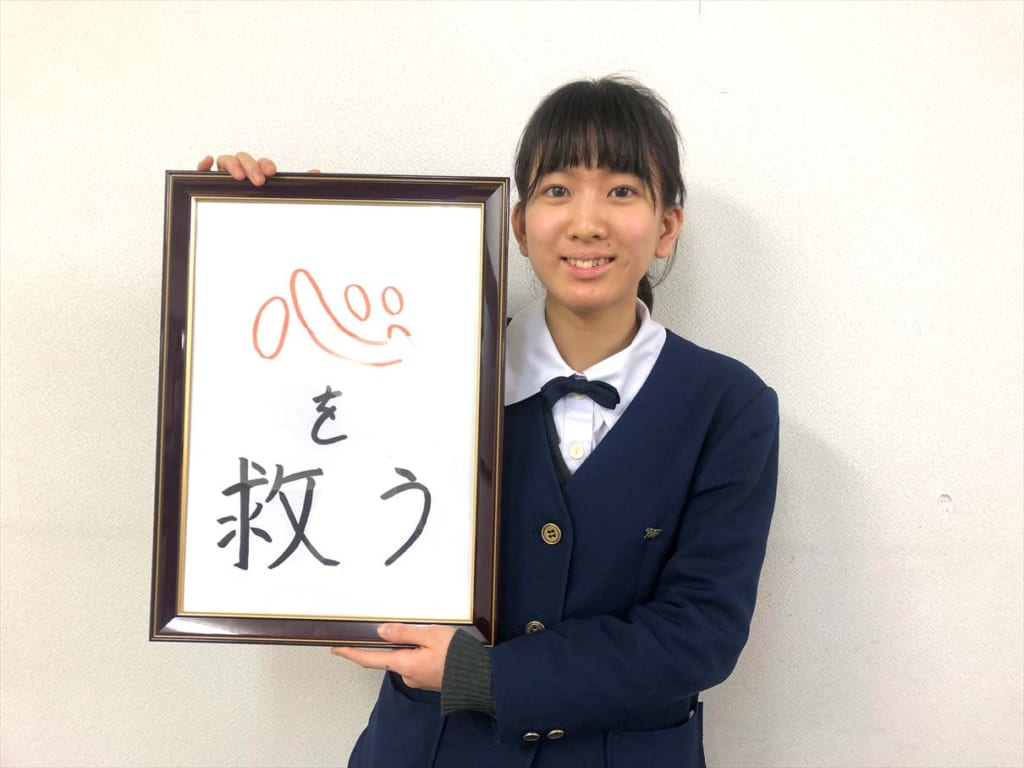 心
を
救う